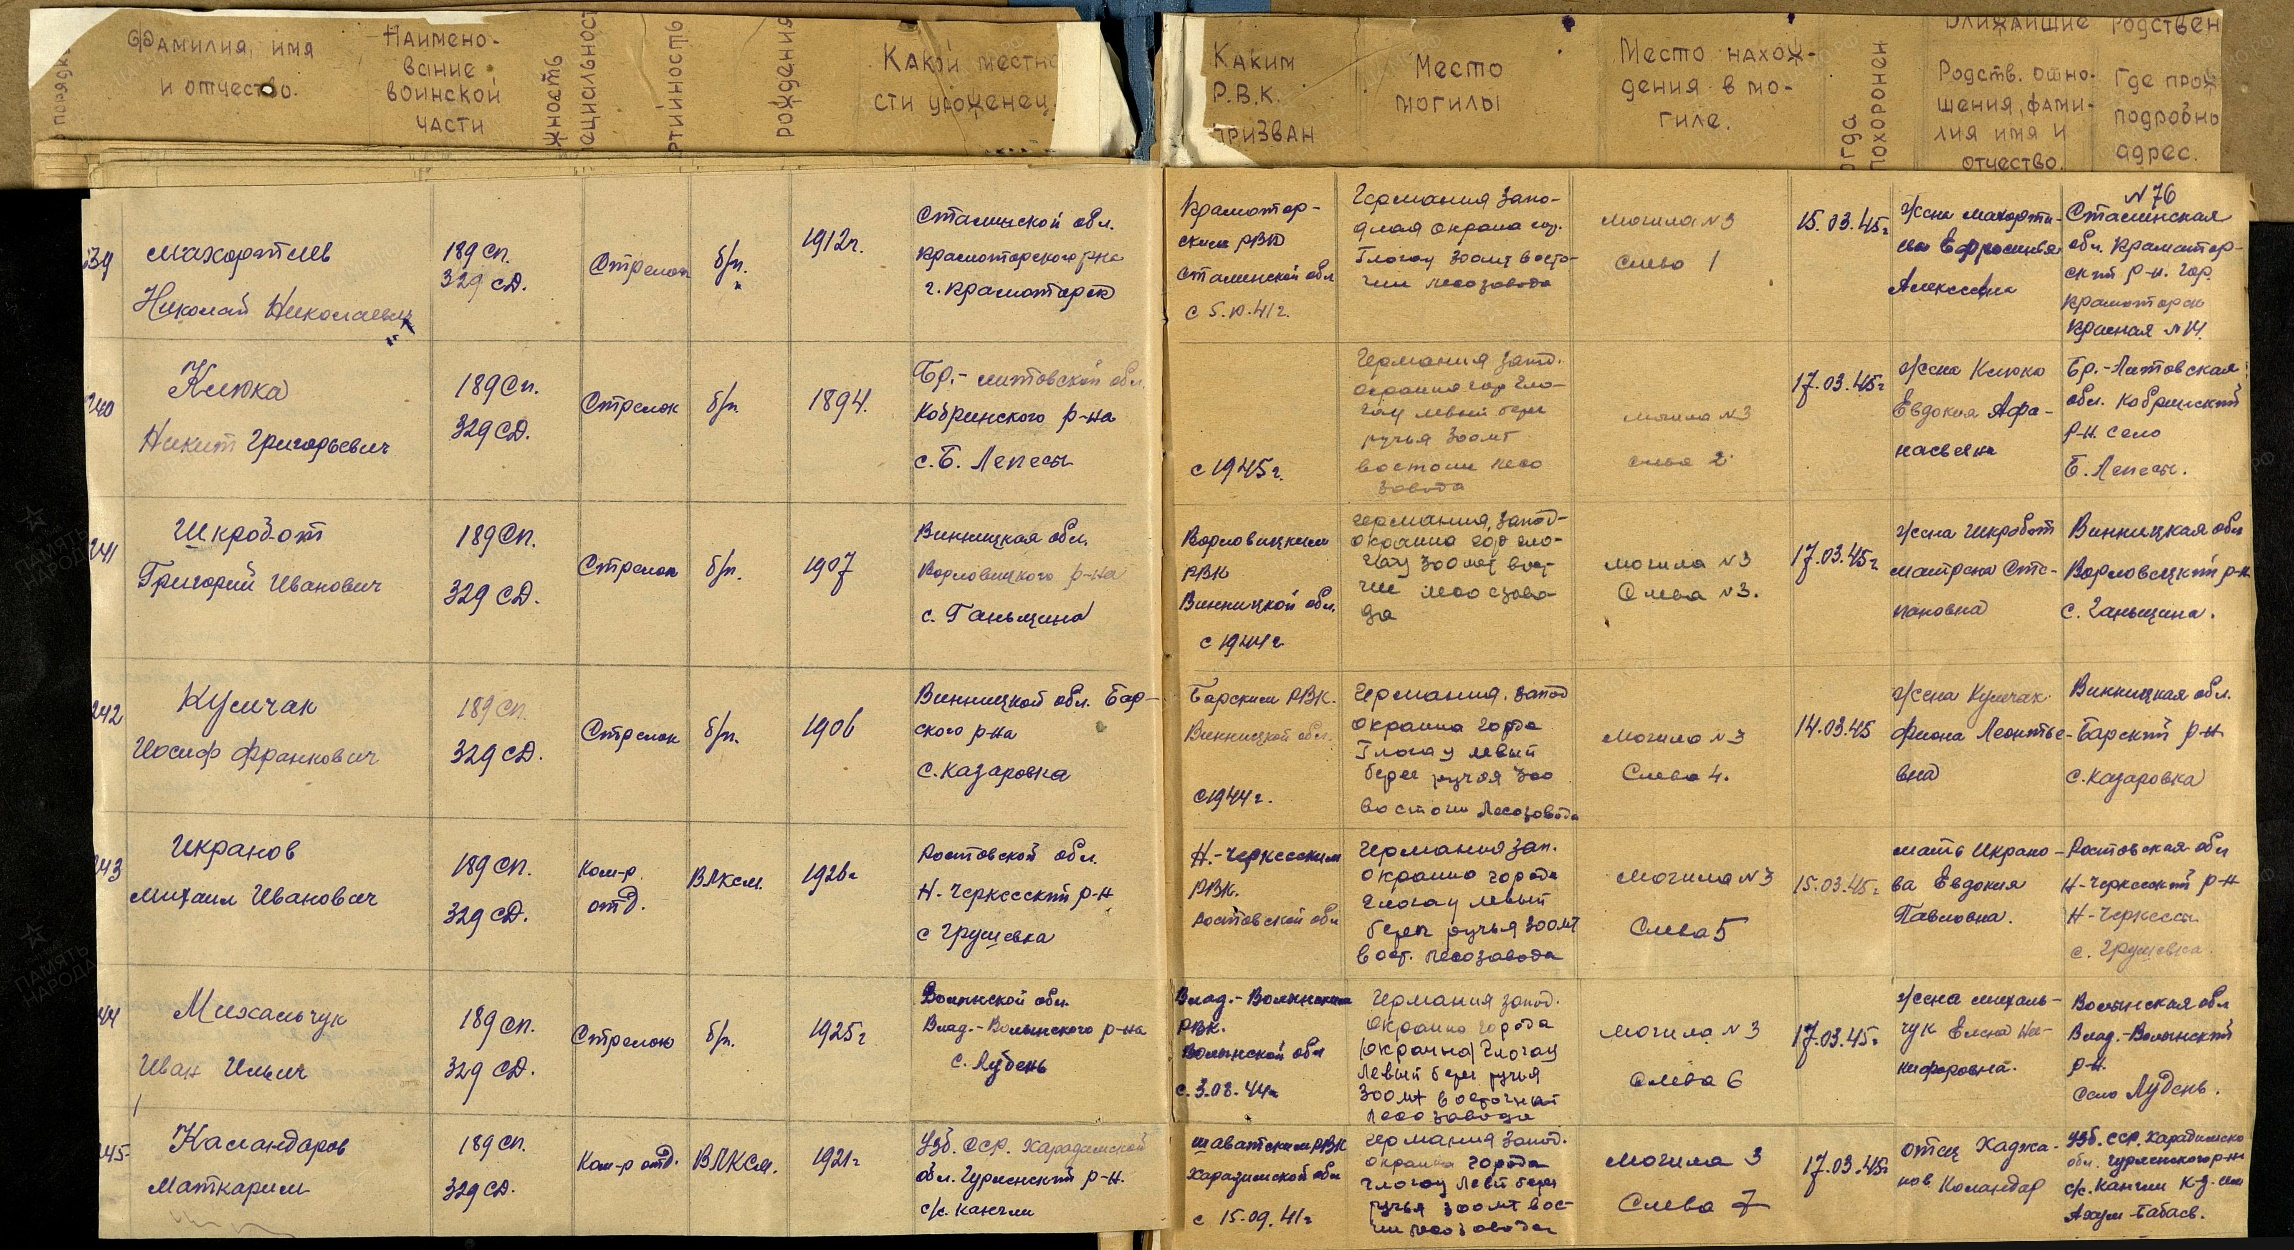 Фамилия, имя
и отчество.
Наимено-
вание
воинской
части
рождения
Какой местно
сти уроженец.
Каким
Р.В.К.
призван
Место
могилы
Место нахож-
дения в мо-
гиле.
похоронен
Ближайшие родствен
Родств. отно-
шения, фами-
лия имя и
отчество.
Где прож
подробно
адрес.
N 76
Махортлев
Николай Николаевич
189 сп.
329 сД.
Стрелок
б/п.
1912г.
Сталинской обл.
Краматорского р-на
г. Краматорск
Краматор-
ским РВК
Сталинской обл
Германия запо-
дная окраина гор.
Глогау 300мт восто-
чнее лесозавода
могила N3
слево 1
15.03.45г
Алексеевна
Сталинская
обл. Краматор-
ский р-н. гор.
Краматорск
Красная N 14.
Клюка
Никит Григорьевич
189 сп.
329 сД.
Стрелок
б/п.
1894.
Бр.-литовской обл.
Кобринского р-на
с. Б. Лепесы
с 1945г.
Германия запд.
окраина гор Гло-
гау левый берег
ручья 300мт
восточн лесо
завода
могила N3
слева 2
17.03.45г
жена Клюко
Евдокия Афа-
насьевна
Бр.-Литовская
обл. Кобринский
р-н. село
Б. Лепесы.
241
Шкробот
Григорий Иванович
189 сп.
329 сД.
Стрелок
б/п.
1907
Винницкая обл.
Ворловицкого р-на
с. Ганьщина
Ворловицким
РВК
Винницкой обл.
с 1944г
Германия, запод-
окраина гор гло-
гау 300мт вост-
чне лесозаво-
да
могила N3
Слева N3.
17.03.45г
жена Шкробот
матрена Сте-
пановна
Винницкая обл
Ворловецкий р-н
с. Ганьщина.
242
Кулчак
Иосиф Франкович
189 сп.
329 сД.
Стрелок
б/п.
1906
Винницкой обл. Бар-
ского р-на
с. Казаровка
Барским РВК.
Винницкой обл.
с 1944г.
Германия. запод
окраина города
Глогау левый
берег ручья 300
восточн Лесозавода
могила N3
Слева 4.
14.03.45
жена Кулчак
Леонтье-
вна
Винницкая обл.
Барский р-н
с. Казаровка
243
Икранов
Михаил Иванович
189 сп.
329 сД.
Ком-р.
отд.
ВЛКСМ.
1926г
Ростовской обл.
Н-Черкесский р-н
с Грушевка
Н.-Черкесским
РВК.
Ростовской обл
Германия зап.
окраина города
Глогау левый
берег ручья 300мт
вост. лесозавода
могила N3
Слева 5
15.03.45г
мать Икрано-
ва Евдокия
Павловна.
Ростовская обл
Н-Черкесский р-н
Н-Черкесск
с. Грушевка.
Михальчук
Иван Ильич
189 сп.
329 сД.
Стрелок
б/п.
1925г
Волынской обл.
Влад.-Волынского р-на
с. Лудень
Влад.-Волынским
РВК.
Волынской обл
с. 3.08.44г
Германия запод.
окраина города
(окраина) Глогау
левый берег ручья
300мт восточный
лесозавода
могила N3
Слева 6
17.03.45г
жена михаль-
чук Елена Ни-
кифоровна.
Волынская обл
Влад.-Волынский
р-н.
село Лудень.
Каландаров
Маткарим
189 сп.
329 сД.
Ком-р отд.
ВЛКСМ.
1921г
Узб. ССР. Харазимской
обл. Гурленский р-н.
с/с. Канчли
Шаватским РВК
Харазимской обл
с 15.09.41г
Германия запод.
окраина города
Глогау Левый берег
ручья 300мт вос-
чн лесозавода
могила 3
Слева 7
17.03.45г
отец Хаджа-
нов Коландар
Узб. ССР. Харазимско
обл. Гурленского р-н
с/с. Канчли